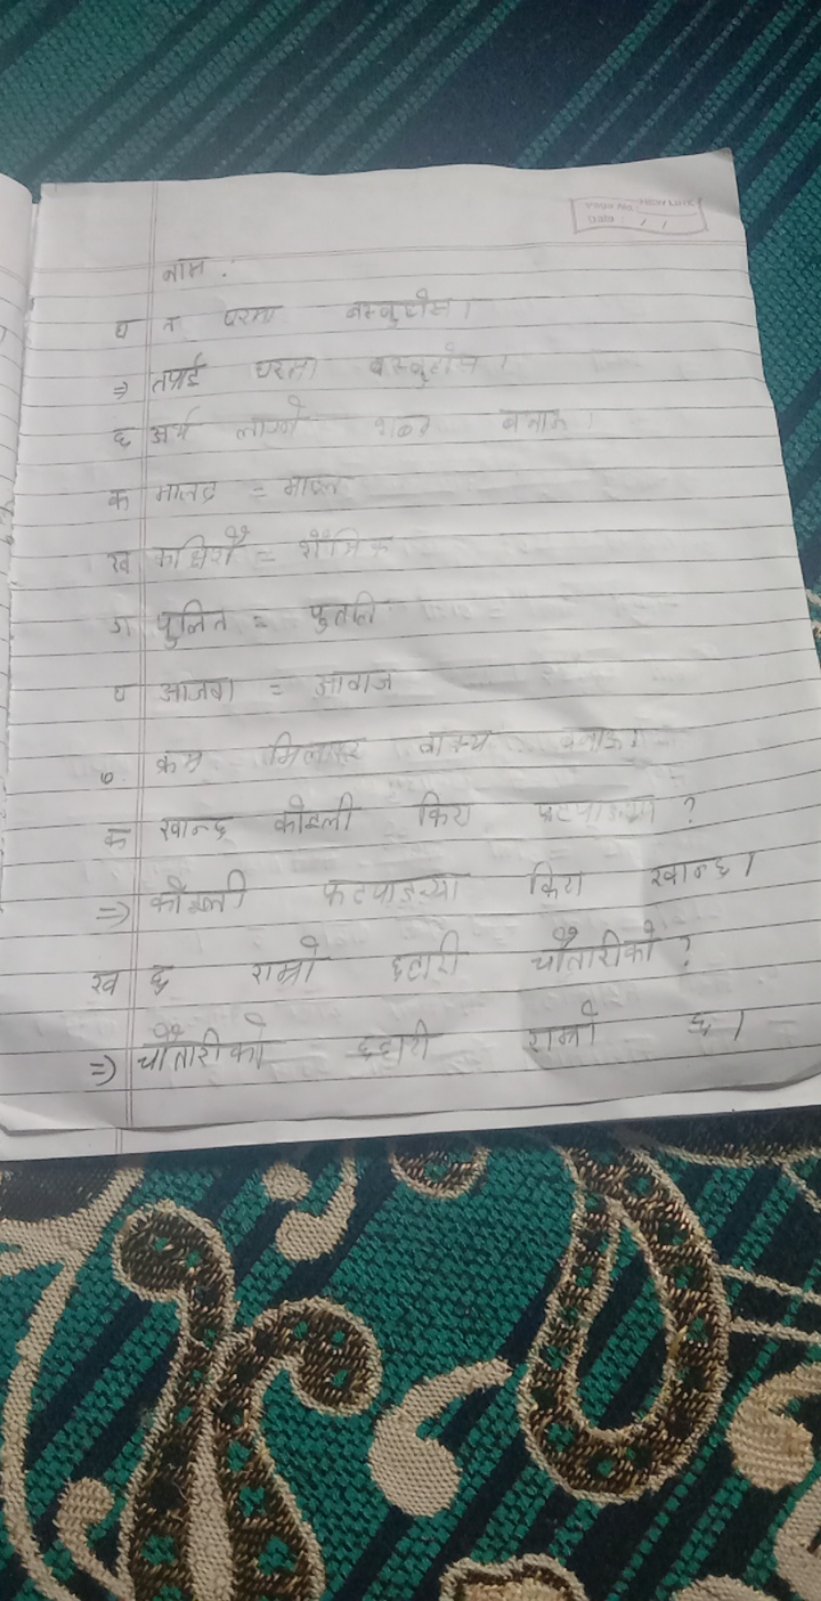 Page No.: NEW LINK
Date : / /
नाम :
घ त घरमा बस्नुहोस।
⇒ तपाई घरमा बस्नुहोस।
६ अर्थ लाग्ने शब्द बनाऊ।
क मालद =
ख काशैशै = शैक्षिक
ग पुलित = पुतलि
घ आजवा = आवाज
७ क्रम मिलाएर वाक्य बनाऊ।
क खान्छ कोइली किरा फटयाङ्ग्रा ?
⇒ कोइली फटयाङ्ग्रा किरा खान्छ।
ख छ राम्रो छहारी चौतारीको ?
⇒ चौतारीको छहारी राम्रो छ।